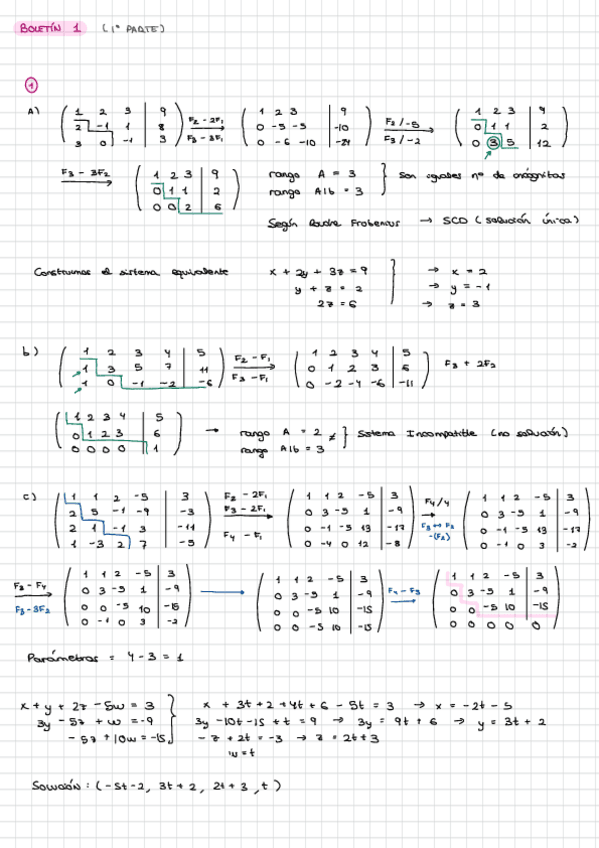 BOLETÍN 1 (1ª PARTE)
1
A) ( 1 2 3 | 9 ; 2 -1 1 | 8 ; 3 0 -1 | 3 ) F2 - 2F1 F3 - 3F1 → ( 1 2 3 | 9 ; 0 -5 -5 | -10 ; 0 -6 -10 | -24 ) F2/-5 F3/-2 → ( 1 2 3 | 9 ; 0 1 1 | 2 ; 0 3 5 | 12 )
F3 - 3F2 → ( 1 2 3 | 9 ; 0 1 1 | 2 ; 0 0 2 | 6 ) rango A = 3 rango A|b = 3 } son iguales nº de incógnitas
Según Rouché Frobenius → SCD (solución única)
Construimos el sistema equivalente x + 2y + 3z = 9 → x = 2
y + z = 2 → y = -1
2z = 6 → z = 3
b) ( 1 2 3 4 | 5 ; 1 3 5 7 | 11 ; 1 0 -1 -2 | -6 ) F2 - F1 F3 - F1 → ( 1 2 3 4 | 5 ; 0 1 2 3 | 6 ; 0 -2 -4 -6 | -11 ) F3 + 2F2
( 1 2 3 4 | 5 ; 0 1 2 3 | 6 ; 0 0 0 0 | 1 ) → rango A = 2 ≠ rango A|b = 3 } Sistema Incompatible (no solución)
c) ( 1 1 2 -5 | 3 ; 2 5 -1 -9 | -3 ; 2 1 -1 3 | -11 ; 1 -3 2 7 | -5 ) F2 - 2F1 F3 - 2F1 F4 - F1 → ( 1 1 2 -5 | 3 ; 0 3 -5 1 | -9 ; 0 -1 -5 13 | -17 ; 0 -4 0 12 | -8 ) F4/4 → ( 1 1 2 -5 | 3 ; 0 3 -5 1 | -9 ; 0 -1 -5 13 | -17 ; 0 -1 0 3 | -2 )
F3 - F4 → ( 1 1 2 -5 | 3 ; 0 3 -5 1 | -9 ; 0 0 -5 10 | -15 ; 0 -1 0 3 | -2 ) → ( 1 1 2 -5 | 3 ; 0 3 -5 1 | -9 ; 0 0 -5 10 | -15 ; 0 0 -5 10 | -15 ) F4 - F3 → ( 1 1 2 -5 | 3 ; 0 3 -5 1 | -9 ; 0 0 -5 10 | -15 ; 0 0 0 0 | 0 )
Parámetros = 4 - 3 = 1
x + y + 2z - 5w = 3 x + 3t + 2 + 4t + 6 - 5t = 3 → x = -2t - 5
3y - 5z + w = -9 3y - 10t - 15 + t = 9 → 3y = 9t + 6 → y = 3t + 2
- 5z + 10w = -15 - z + 2t = -3 → z = 2t + 3
w = t
Solución: (-5t - 2, 3t + 2, 2t + 3, t)